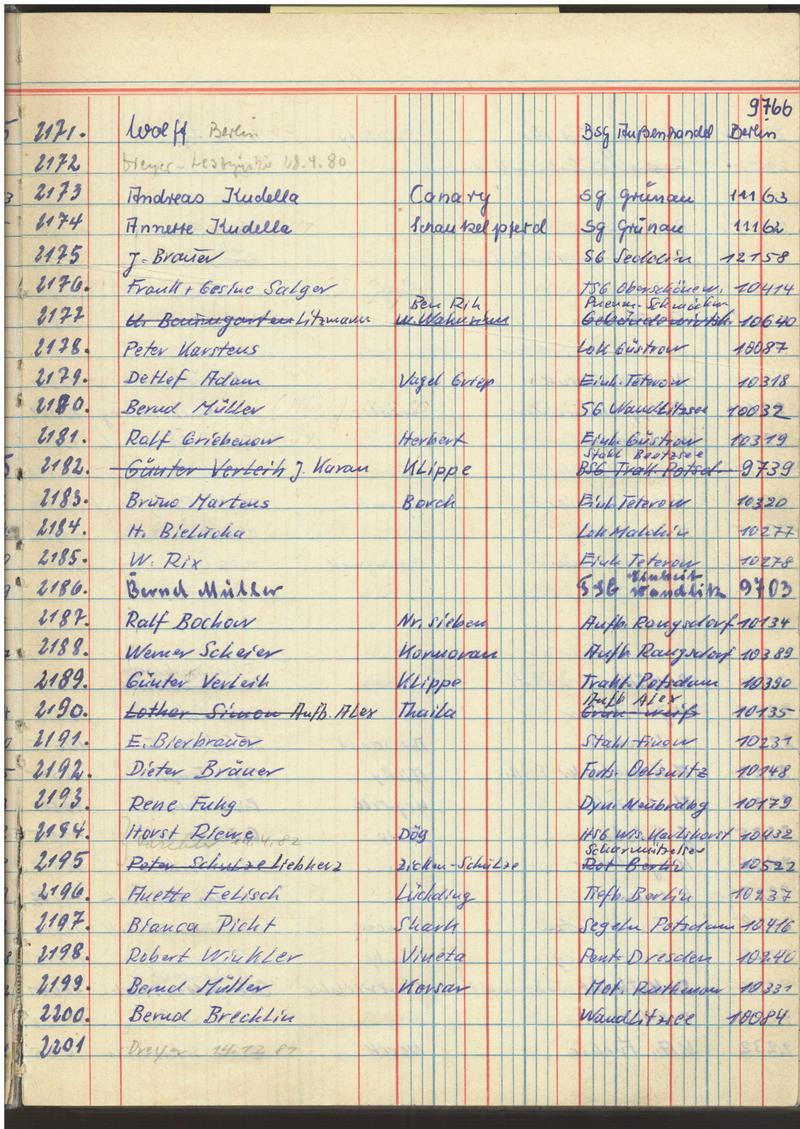 9766
2171. Wolff Berlin BSG Außenhandel Berlin
2172 Dreyer - 28.4.80
2173 Andreas Kudella Canary SG Grünau 11163
2174 Annette Kudella Schaukelpferd SG Grünau 11162
2175 J. Brauer SG Seddin 12158
2176. Frank + Gesine Salger TSG Oberschönew. 10414
Ben Rih Pneum.
2177 U. Baumgarten Litzmann 10640
2178. Peter Karstens Lok Güstrow 10087
2179. Detlef Adam Vogel Griep Einh. Teterow 10318
2180. Bernd Müller SG Wandlitzsee 10032
2181. Ralf Griebenow Herbert Einh. Güstrow 10319
Stahl Beetzsee
2182. Günter Verleih J. Karan Klippe BSG Trakt. Potsd. 9739
2183. Bruno Martens Borch Einh. Teterow 10320
2184. H. Bielucha Lok Malchin 10277
2185. W. Rix Einh. Teterow 10278
Einheit
2186. Bernd Müller Wandlitz 9703
2187. Ralf Bochow Nr. sieben Aufb. Rangsdorf 10134
2188. Werner Scheier Kormoran Aufb. Rangsdorf 10389
2189. Günter Verleih Klippe Trakt. Potsdam 10390
Aufb. Alex
2190. Lothar Simon Aufb. Alex Thaila Grün-weiß 10135
2191. E. Bierbrauer Stahl Finow 10231
2192. Dieter Bräuer Forts. Oelsnitz 10148
2193. Rene Fuhg Dyn. Neubrdbg 10179
2194. Horst Riewe Dög HSG Wis. Karlshorst 10432
Scharmützelsee
2195 Peter Schulze Liebherz Zicken-Schulze Rot Berlin 10522
2196. Anette Felisch Lüchding Tiefb. Berlin 10237
2197. Bianca Picht Shark Segeln Potsdam 10416
2198. Robert Winkler Vineta Pent. Dresden 10240
2199. Bernd Müller Korsar Mot. Rathenow 10331
2200. Bernd Brechlin Wandlitzsee 10084
2201 Dreyer 14.12.81